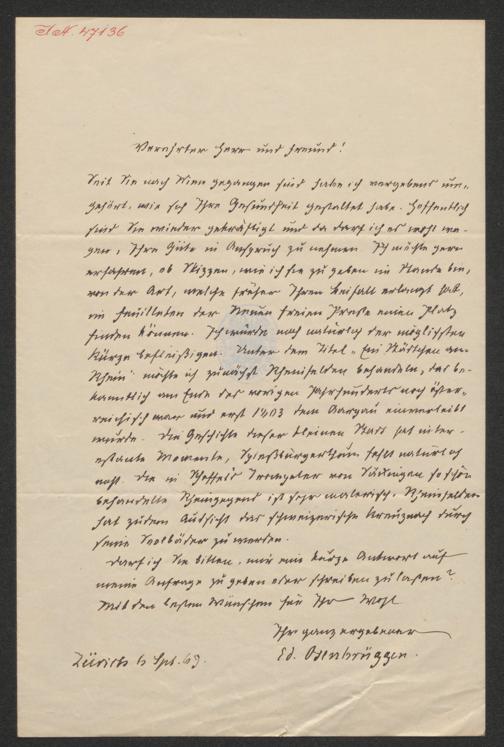 J.N. 47136
Verehrter Herr und Freund!
Seit Sie nach Wien gegangen sind habe ich vergebens um-
gehört, wie sich Ihre Gesundheit gestaltet habe. Hoffentlich
sind Sie wieder gekräftigt und da darf ich es wohl wa-
gen, Ihre Güte in Anspruch zu nehmen. Ich möchte gern
erfahren, ob Skizzen, wie ich sie zu geben im Stande bin,
von der Art, welche früher Ihren Beifall erlangt hat,
im Feuilleton der Neuen Freien Presse einen Platz
finden können. Ich würde mich natürlich der möglichsten
Kürze befleißigen. Unter dem Titel "Ein Städtchen am
Rhein" möchte ich zunächst Rheinfelden behandeln, das be-
kanntlich am Ende des vorigen Jahrhunderts noch öster-
reichisch war und erst 1803 dem Aargau einverleibt
wurde. Die Geschichte dieser kleinen Stadt hat inter-
essante Momente, Spießbürgerthum fehlt natürlich
nicht. Die in Scheffels Trompeter von Säckingen so schön
behandelte Rheingegend ist sehr malerisch. Rheinfelden
hat zudem Aussicht das schweizerische Kreuznach durch
seine Soolbäder zu werden.
Darf ich Sie bitten, mir eine kurze Antwort auf
meine Anfrage zu geben oder schreiben zu laßen?
Mit den besten Wünschen für Ihr Wohl
Ihr ganz ergebener
Zürich 6 Spt. 69.
Ed. Osenbrüggen.